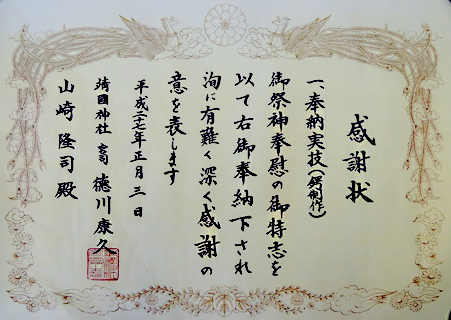 感謝状
一、奉納実技(鍔制作)
御祭神奉慰の御特志を
以て右御奉納下され
洵に有難く深く感謝の
意を表します
平成二十七年正月三日
靖國神社 宮司 徳川康久
山崎隆司殿